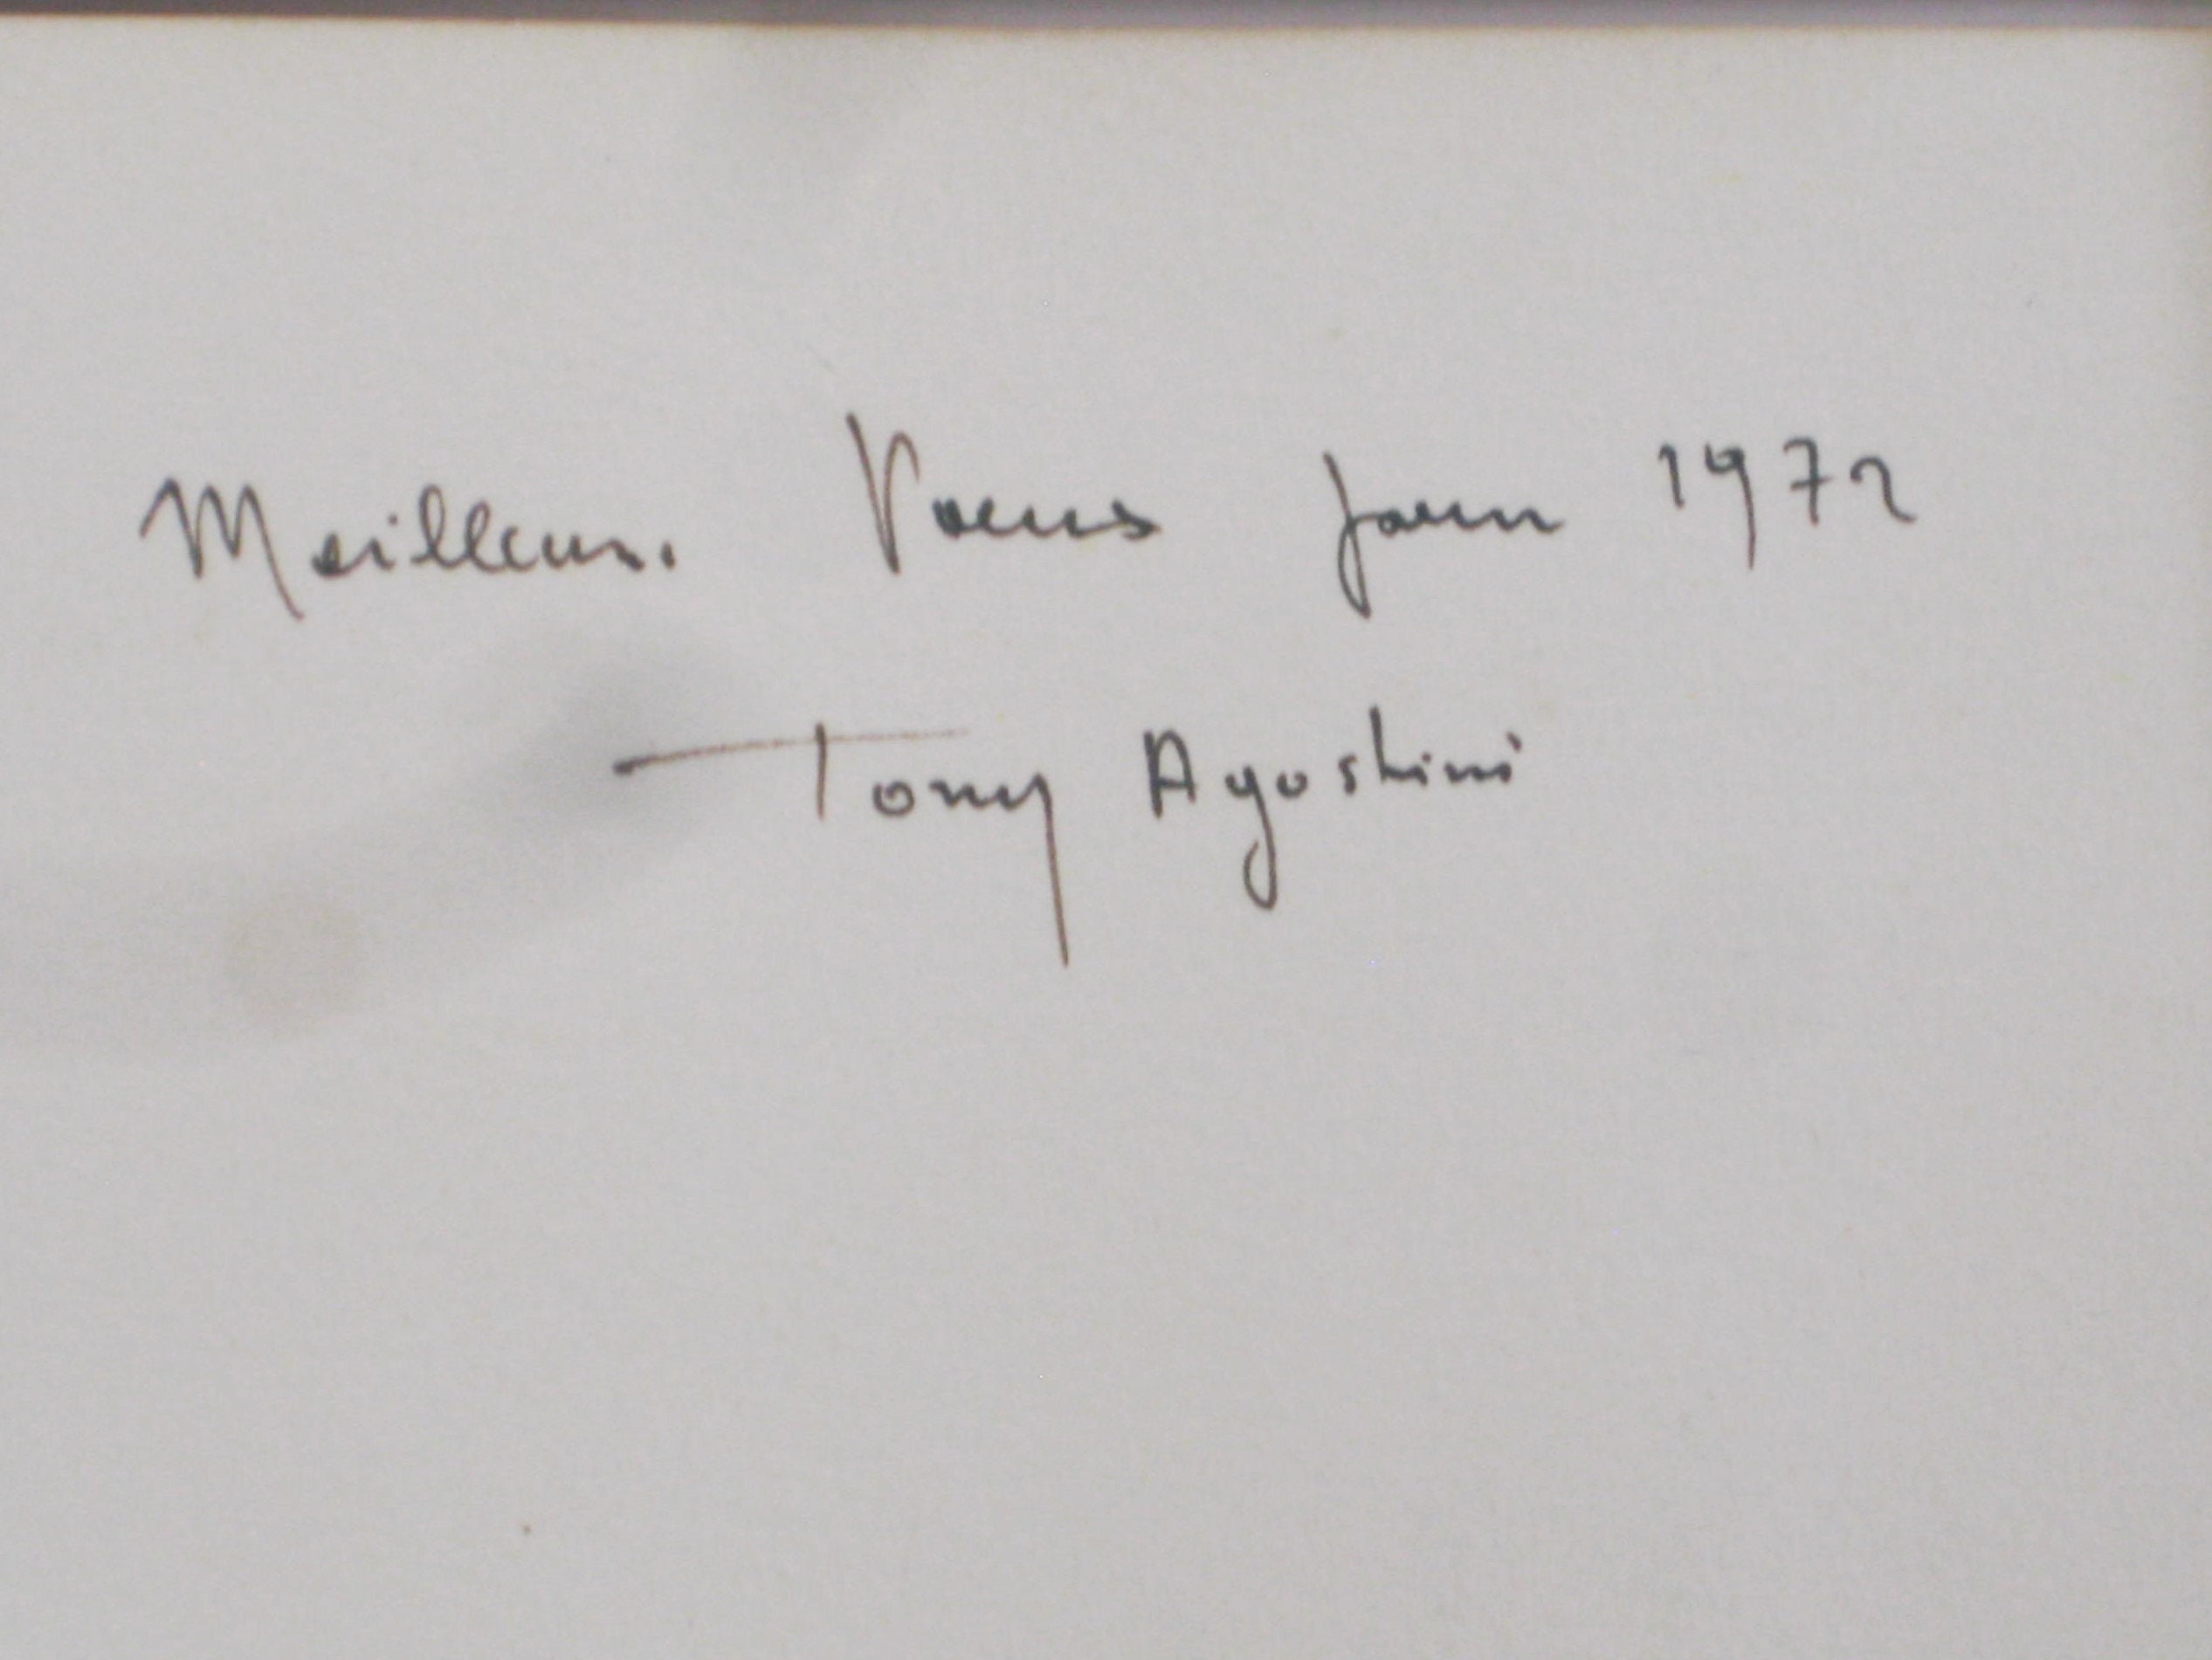 Meilleurs Voeux pour 1972
Tony Agostini